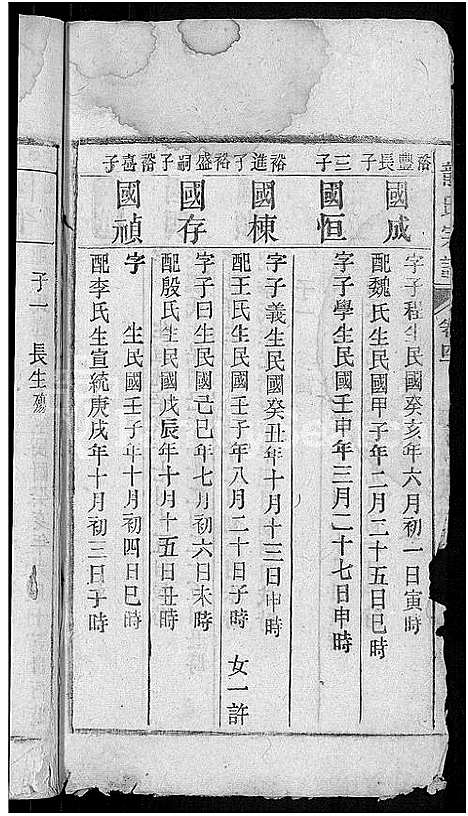 裕豐長子
國成
字子程生民國癸亥年六月初一日寅時
配魏氏生民國甲子年二月二十五日巳時
三子
國恒
字子學生民國壬申年三月二十七日申時
裕進子
國棟
字子義生民國癸丑年十月十三日申時
配王氏生民國壬子年八月二十日子時 女一許
裕盛嗣子
國存
字子曰生民國己巳年七月初六日未時
配殷氏生民國戊辰年十月十五日丑時
裕嘉子
國禎
字 生民國壬子年十月初四日巳時
配李氏生宣統庚戌年十月初三日子時
子一 長生殤
氏宗譜
卷四